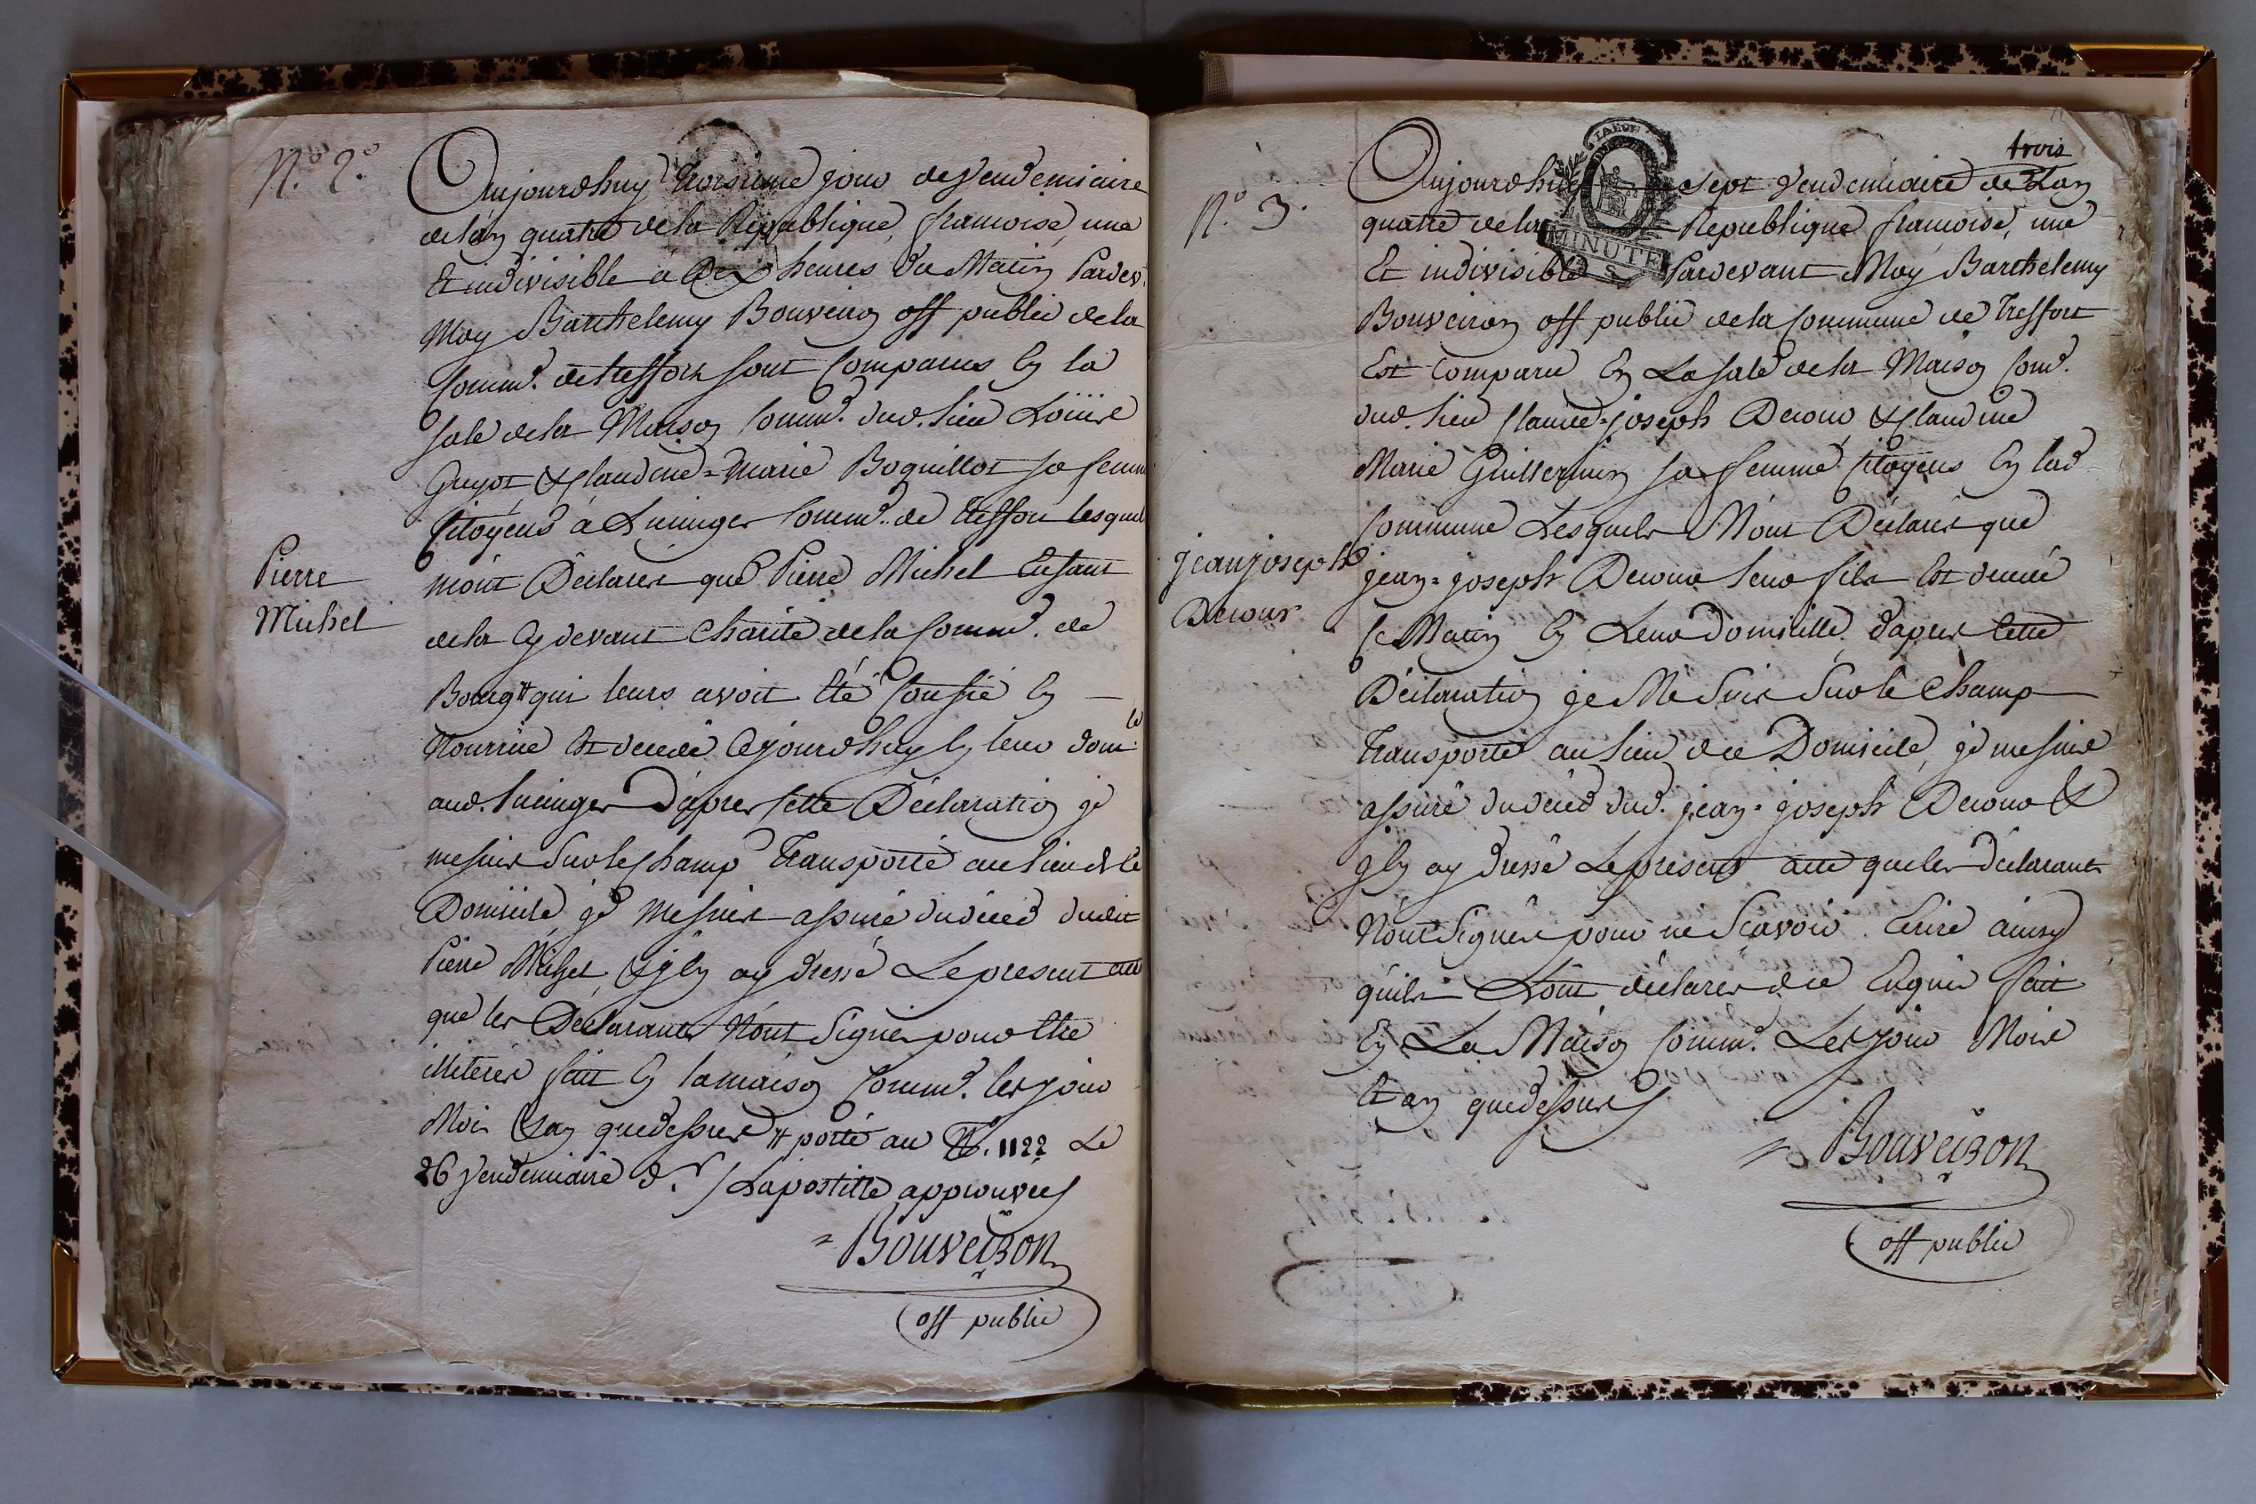 N.º 2.º
Aujourdhuy troisieme jour de Vendemiaire
de lan quatre de la Republique francoise, une
Et indivisible a Dix heures du Matin Pardev.
Moy Barthelemy Bouveiron off public de la
Comm.e de treffort sont Comparus En la
sale de la Maison Comm.e dud. lieu
Guyot, & Claudine=Marie Boquillot sa femme
Citoyens à Lucinges Comm.e de treffort lesquel
Pierre
Michel
mont Déclarés que Pierre Michel Enfant
de la Cy devant Charité de la Comm.e de
Bourg # qui leurs avoit Eté Confié En
Nourrice Est decedé Cejourdhuy En leur dom.le
aud. Lucinges D'apres cette Déclaration je
me suis Sur le Champ Transporté au lieu de le
Domicile je me suis assuré du décéd dudit
Pierre Michel, & j'En ay dressé Le present acte
que les Déclarants N'ont Signés pour Etre
illiteres fait En la maison Comm.e les jour
Mois & an que dessus # porté au N. 1122 Le
26 Vendemiaire d.r / Lapostille approuvée
Bouveiron
off public
trois
N.º 3.
Aujourdhuy sept Vendemiaire de Lan
quatre de la Republique francoise, une
MINUTE
Et indivisible Pardevant Moy Barthelemy
Bouveiron off public de la Commune de treffort
Est Comparu En La sale de la Maison Com.e
dud. lieu Claude=joseph Decour & Claudine
Marie Guillermin sa femme Citoyens En lad
Commune Lesquels M'ont Déclarés que
jean joseph
Decour
jean=joseph Decour leur fils Est decedé
Ce Matin En Leur Domicille, d'apres Cette
Déclaration je Me Suis Sur le Champ
Transporté au lieu du Domicile, je me suis
assuré du décéd dud. jean=joseph Decour &
j'En ay dressé Le present acte que les déclarants
N'ont Signés pour ne Scavoir Ecrire ainsy
qu'ils L'ont déclarés de Enquis fait
En La Maison Comm.e Les jour Mois
Et an que dessus
Bouveiron
off public